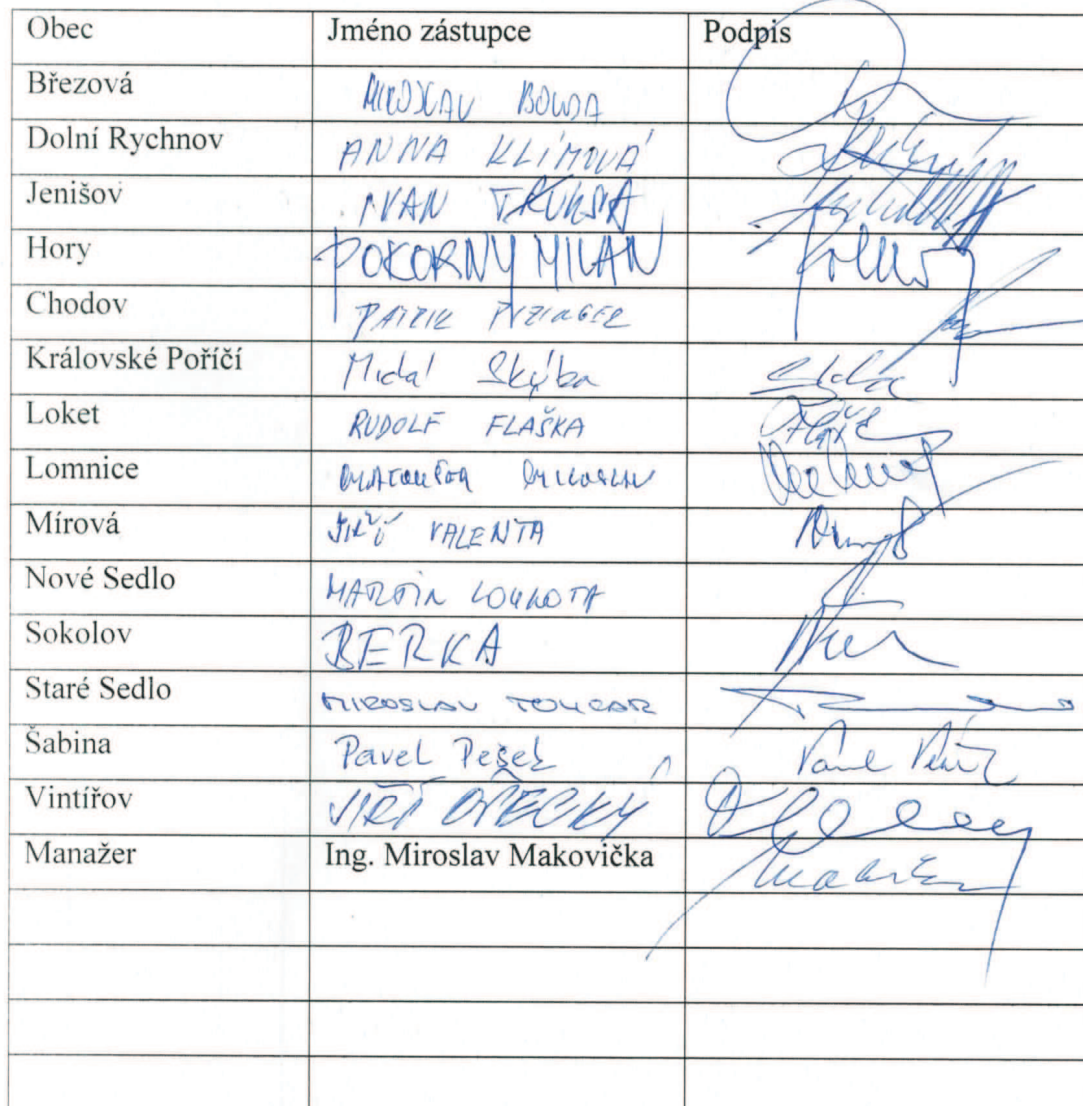 Obec Jméno zástupce Podpis
Březová MIROSLAV BOUDA
Dolní Rychnov ANNA KLÍMOVÁ
Jenišov IVAN TRUKSA
Hory POKORNÝ MILAN
Chodov PATRIK PIZINGER
Královské Poříčí Michal Skýba
Loket RUDOLF FLAŠKA
Lomnice MILOSLAV
Mírová JIŘÍ VALENTA
Nové Sedlo MARTIN LOUKOTA
Sokolov BERKA
Staré Sedlo MIROSLAV TOUCAR
Šabina Pavel Pešek
Vintířov JIŘÍ OŘECKÝ
Manažer Ing. Miroslav Makovička